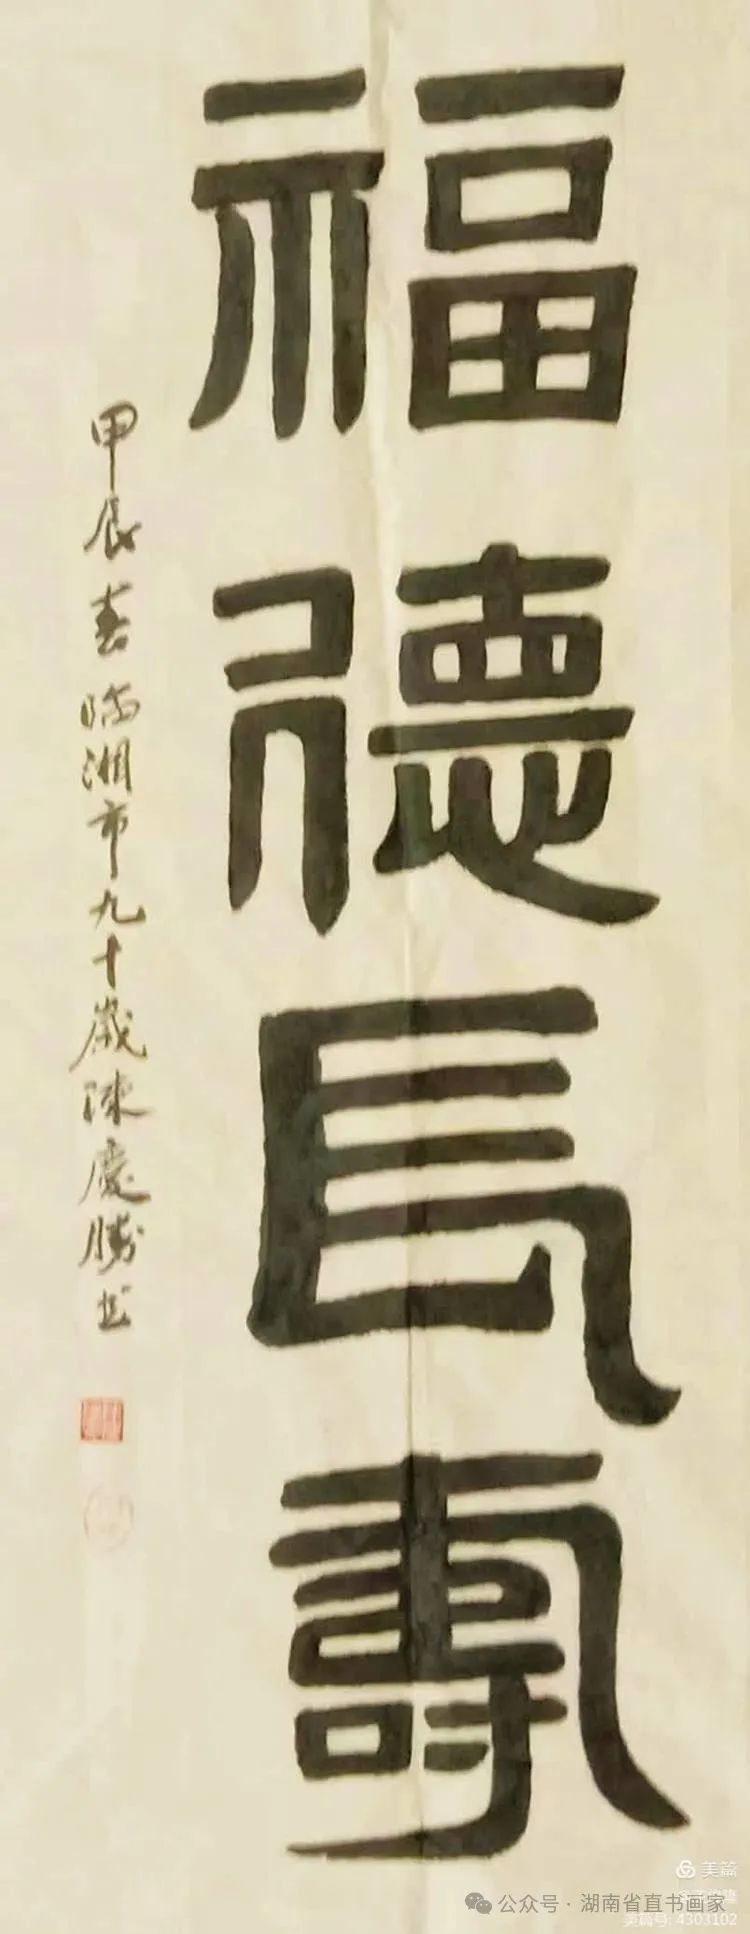 福德長壽
甲辰春臨湘市九十歲陳慶勝书
美篇
公众号·湖南省直书画家
美篇号: 4303102